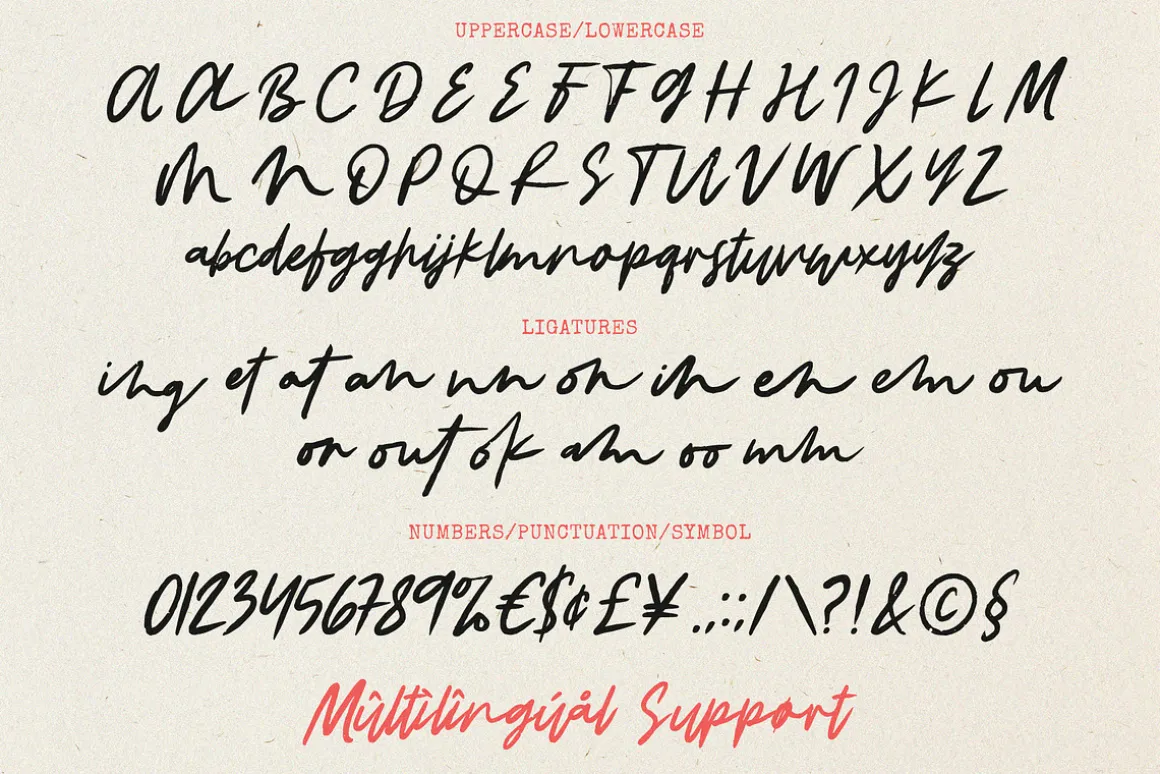 UPPERCASE/LOWERCASE
A A B C D E E F F G H H I J K L M
M N O P Q R S T U V W X Y Z
abcdefgghijklmnopqrstuvwxyyzz
LIGATURES
ing et at an nn on in en em ou
or out ok am oo mm
NUMBERS/PUNCTUATION/SYMBOL
0123456789%€$¢£¥.,:;/\?!&©§
Mûltìlîngúål Suppørt